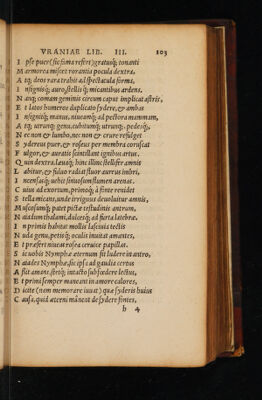 VRANIAE LIB. III. 103
I pse puer (sic fama refert) gratusq; tonanti
M armorea miscet rorantia pocula dextra.
A tq; deos rara trahit ad spectacula forma,
I nsignisq; auro, stellisq; micantibus ardens.
N anq; comam geminis circum caput implicat astris,
E t latos humeros duplicato sydere, & ambas
I nsignitq; manus. niueamq; ad pectora mammam,
A tq; utrunq; genu. cubitumq; utrunq;. pedesq;.
N ec non & lumbo, nec non & crure refulget
S ydereus puer, & roseus per membra coruscat
V ulgor, & auratis scintillant ignibus artus.
Q uin dextra. leuaq; hinc illinc stellifer amnis
L abitur, & fuluo radiat fluor aureus imbri,
I ncensasq; uehit sinuosum flumen arenas.
C uius ad exortum, primoq; à fonte renidet
S tella micans, unde irriguus deuoluitur amnis,
M uscosumq; patet pictæ testudinis antrum,
N aiadum thalami, dulcesq; ad furta latebræ.
I n primis habitat mollis lasciuia tectis
N uda genu, petisq; oculis inuitat amantes,
E t præfert niueas rosea ceruice papillas.
S ic uobis Nymphæ æternum sit ludere in antro,
N aiades Nymphæ, sic ipse ad gaudia certus
A sit amans, stratoq; intacto subfœdere lectus,
E t primi semper maneant in amore calores,
D icite (nam memorare iuuat) quæ syderis huius
C ausa, quid æterni maneat de sydere fontes,
h 4